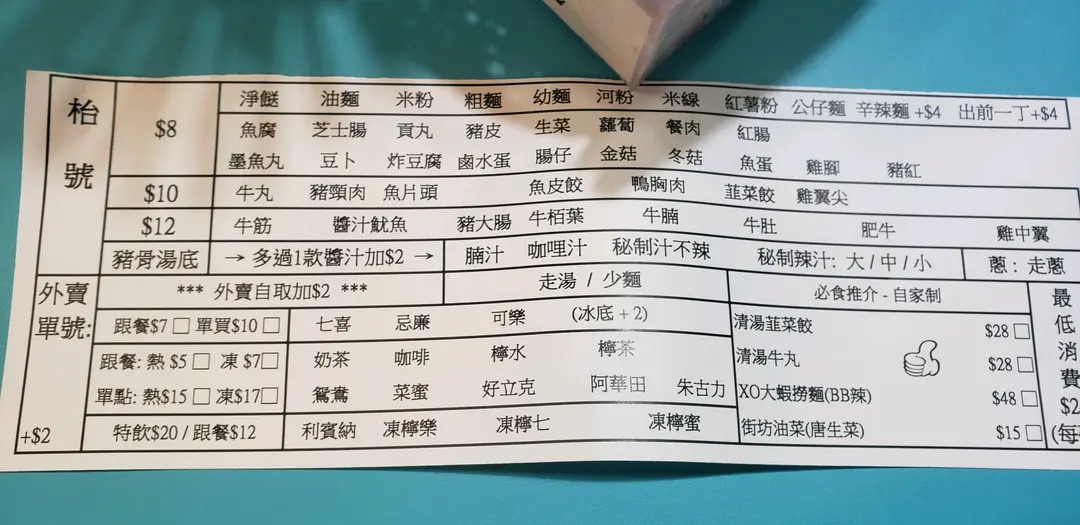 枱號
淨餸 油麵 米粉 粗麵 幼麵 河粉 米線 紅薯粉 公仔麵 辛辣麵 +$4 出前一丁+$4
$8
魚腐 芝士腸 貢丸 豬皮 生菜 蘿蔔 餐肉 紅腸
墨魚丸 豆卜 炸豆腐 鹵水蛋 腸仔 金菇 冬菇 魚蛋 雞腳 豬紅
$10 牛丸 豬頸肉 魚片頭 魚皮餃 鴨胸肉 韮菜餃 雞翼尖
$12 牛筋 醬汁魷魚 豬大腸 牛栢葉 牛腩 牛肚 肥牛 雞中翼
豬骨湯底 → 多過1款醬汁加$2 → 腩汁 咖哩汁 秘制汁不辣 秘制辣汁: 大 / 中 / 小 蔥 : 走蔥
外賣單號:
+$2
*** 外賣自取加$2 *** 走湯 / 少麵
跟餐$7 □ 單買$10 □ 七喜 忌廉 可樂 (冰底 + 2)
跟餐: 熱 $5 □ 凍 $7□ 奶茶 咖啡 檸水 檸茶
單點: 熱$15 □ 凍$17□ 鴛鴦 菜蜜 好立克 阿華田 朱古力
特飲$20 / 跟餐$12 利賓納 凍檸樂 凍檸七 凍檸蜜
必食推介 - 自家制
清湯韮菜餃 $28 □
清湯牛丸 $28 □
XO大蝦撈麵(BB辣) $48 □
街坊油菜(唐生菜) $15 □
最低消費
$2
(每